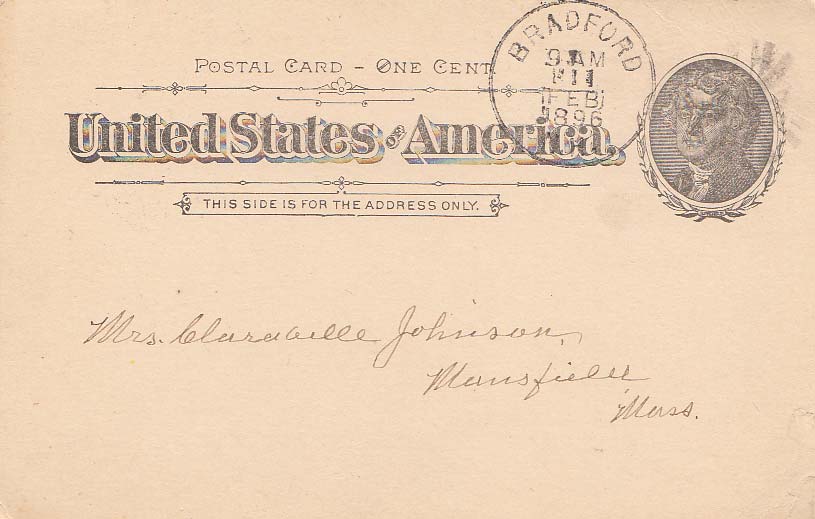 POSTAL CARD - ONE CENT
United States of America.
THIS SIDE IS FOR THE ADDRESS ONLY.
BRADFORD
9 AM
11
FEB
1896
Mrs. Claravelle Johnson,
Mansfield
Mass.